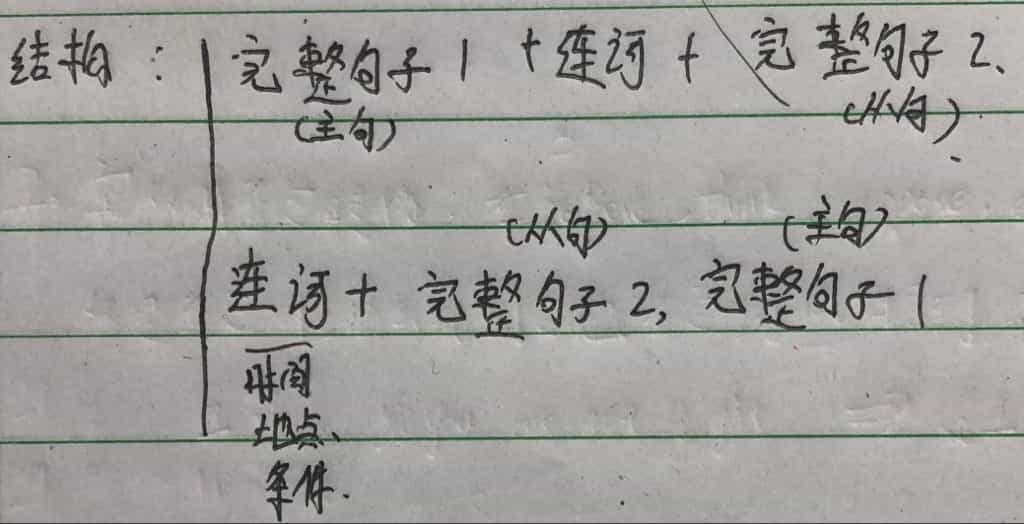 结构： 完整句子1 +连词+ 完整句子2、
(主句) (从句).
(从句) (主句)
连词+ 完整句子2, 完整句子1
时间
地点、
条件.